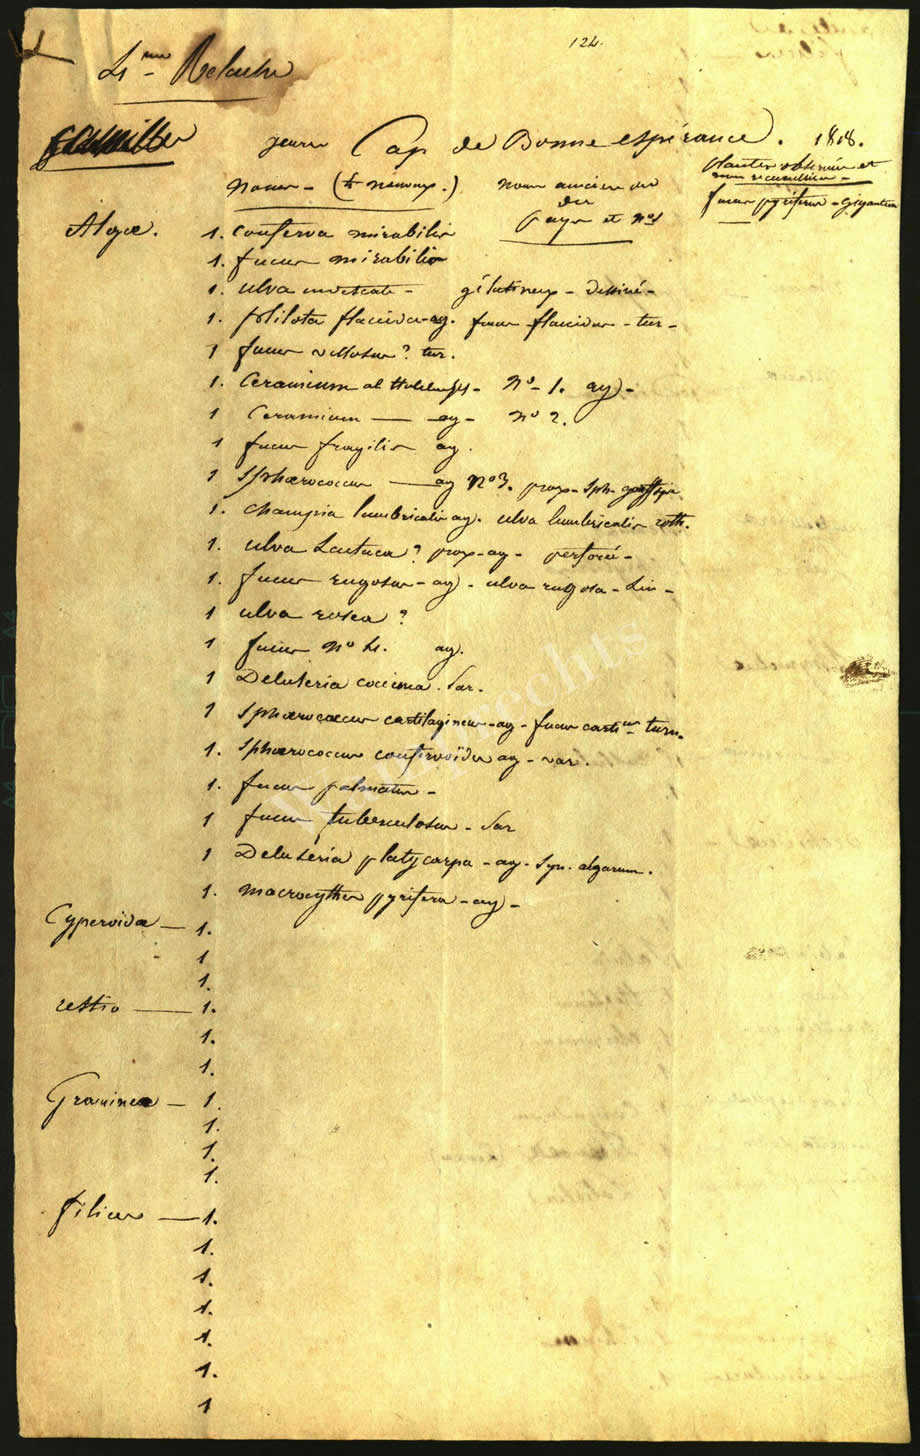 124.
4me Relache
genre Cap de Bonne espérance. 1818.
plantes observées et
non recueillies -
noms - ( nouveaux.) noms anciens ou
du
pays et nos
fucus pyriferus - giganteus
Algae. 1. conferva mirabilis
1. fucus mirabilis
1. ulva - gélatineux - dessiné -
1. ptilota flaccida - ag. fucus flaccidus - tur -
1 fucus villosus? tur.
1. Ceramium - no - 1. ag -
1 Ceramium — ag - no 2.
1 fucus fragilis ag.
1 Sphaerococcus — ag no 3. prox - Sph.
1. champia lumbricalis ag. ulva lumbricalis roth.
1. ulva Lactuca? prox - ag - perforé -
1. fucus rugosus - ag - ulva rugosa - Lin -
1 ulva rosea?
1 fucus no 4. ag.
1 Deleseria coccinea.
1 Sphaerococcus cartilagineus - ag - fucus cartus turn.
1. Sphaerococcus confervoïdes ag - var.
1. fucus palmatus -
1 fucus tuberculosus -
1 Deleseria platycarpa - ag - Syn. algarum.
1. macrocysthes pyrifera - ag -
Cyperoïdae — 1.
1
1.
restio — 1.
1.
1.
Gramineae — 1.
1.
1.
1.
filices — 1.
1.
1.
1.
1.
1.
1